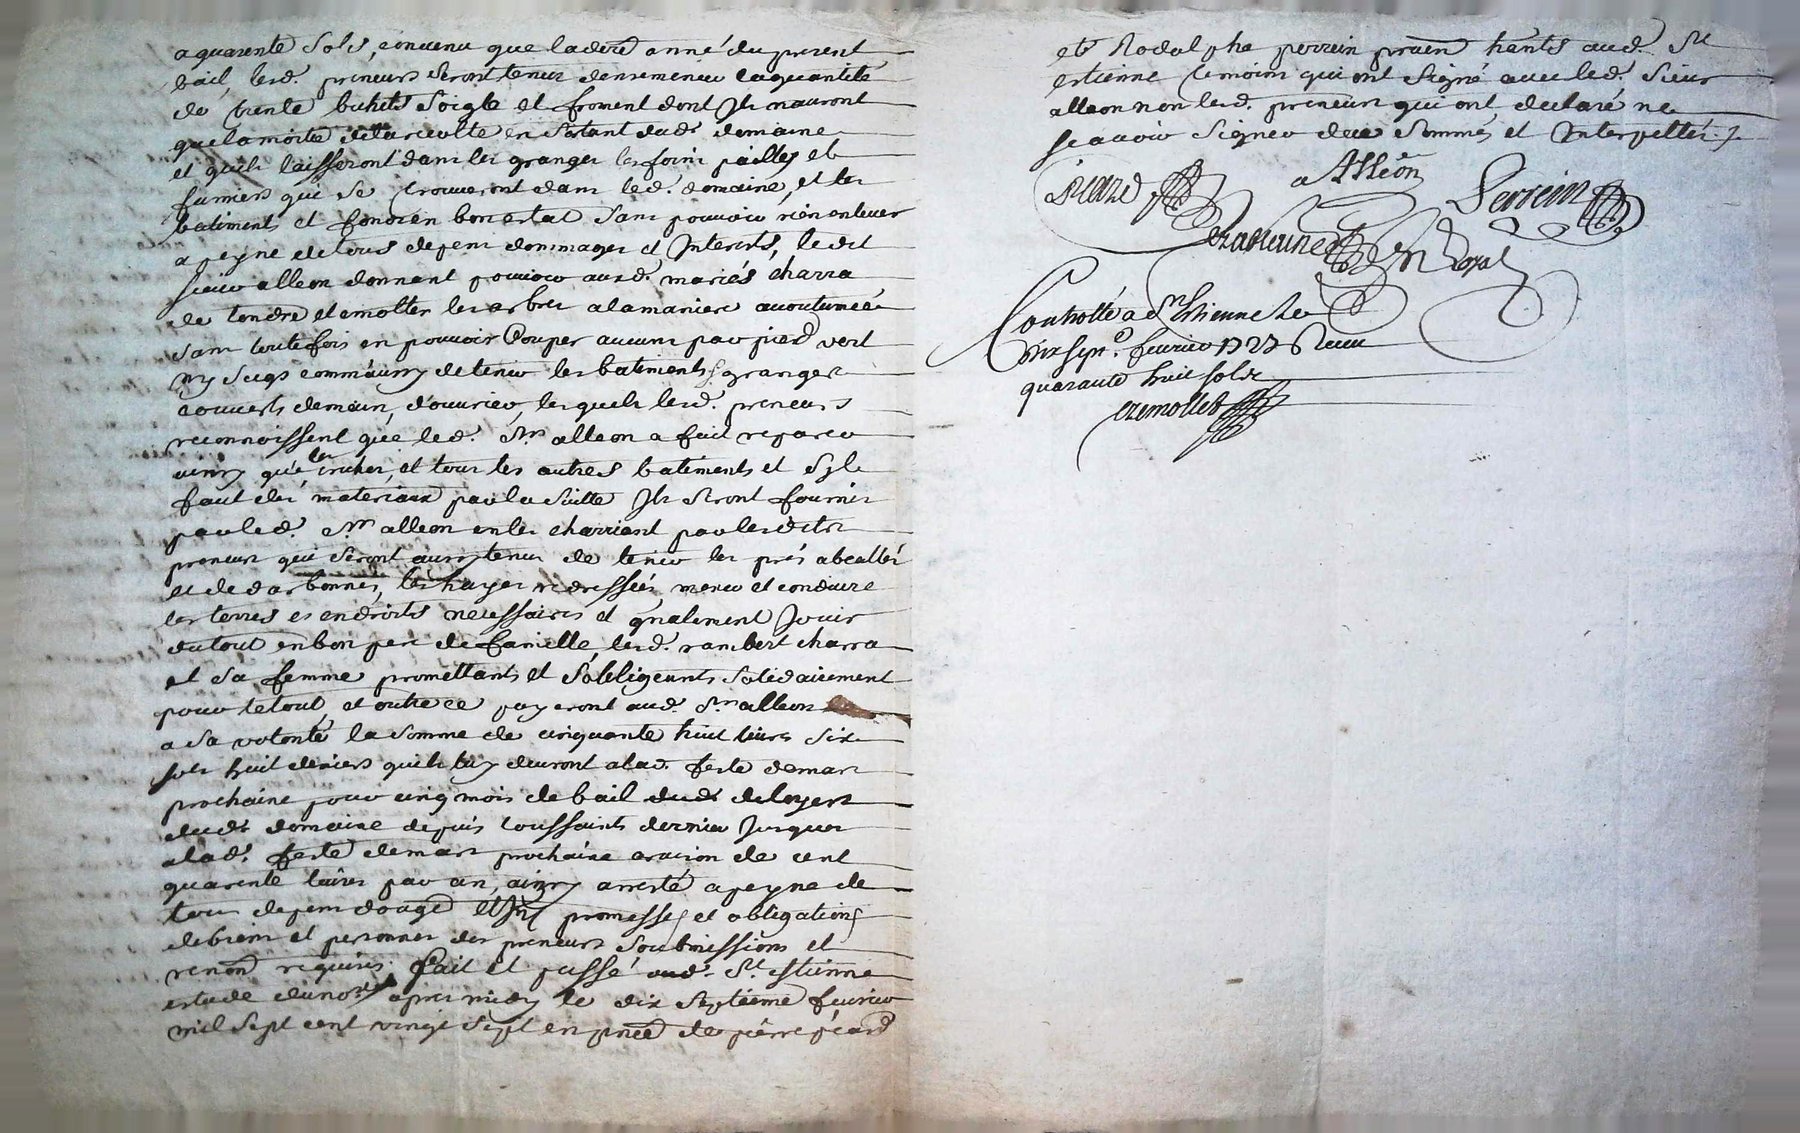 a quarente sols, convenu que la dere anné du present
bail, lesd. preneurs seront tenus densemencer la quantité
de trente bichets soigle et froment dont Ils nauront
que la moitié de la recolte en sortant dud. domaine
et quils laisseront dans les granges les foins pailles et
fumiers qui se trouveront dans led. domaine, et les
batiments et fonds en bon estat sans pouvoir rien enlever
a peyne de tous depens dommages et Interests, le dit
sieur alleon donnant pouvoir ausd. mariés charra
de tondre et emotter les arbres a la maniere accoutumée
sans toutefois en pouvoir Couper aucuns par pied vert
ny secqs comm'aussy de tenir les batiments, granges
couverts de main, d'ouvrier, lesquels lesd. preneurs
reconnoissent que led. Sr. alleon a fait reparer
ainsy que les cruches, et tous les autres batiments et s'yl
faut des materiaux par la suitte Ils seront fournis
par led. Sr. alleon en les charriant par lesdits
preneurs qui seront aussy tenus de tenir les prés abeallés
et dedarbonnés, les hayes redressées, mener et conduire
les terres es endroits necessaires et gnalement Jouir
du tout en bon pere de famille, lesd. rambert charra
et sa femme promettants et s'obligeants solidairement
pour le tout et outre ce payeront aud. Sr. alleon
a sa volonté la somme de cinquante huit livres six
sols huit deniers quils luy devront a lad. feste de mars
prochaine pour cinq mois de bail dud. de loyers
dud. domaine depuis toussaints dernier Jusques
a lad. feste de mars prochaine a raison de cent
quarente livres par an, ainsy arresté a peyne de
tous depens domge et Int promesses et obligations
de biens et personnes des preneurs soubmissions et
renon requises. fait et passé aud. St. estienne
estude du nore apres midy le dix septieme fevrier
mil sept cent vingt sept en pnce de pierre picard
et Rodolphe perrein praen hants aud. St
estienne temoins qui ont signé avec led. sieur
alleon non lesd. preneurs qui ont declaré ne
scavoir signer de ce sommés et Interpellés./.
picard
a Alléon
Perrein
nre Royal
Controllé a St Estienne le
dix sept. fevrier 1727 Receu
quarante huit sols